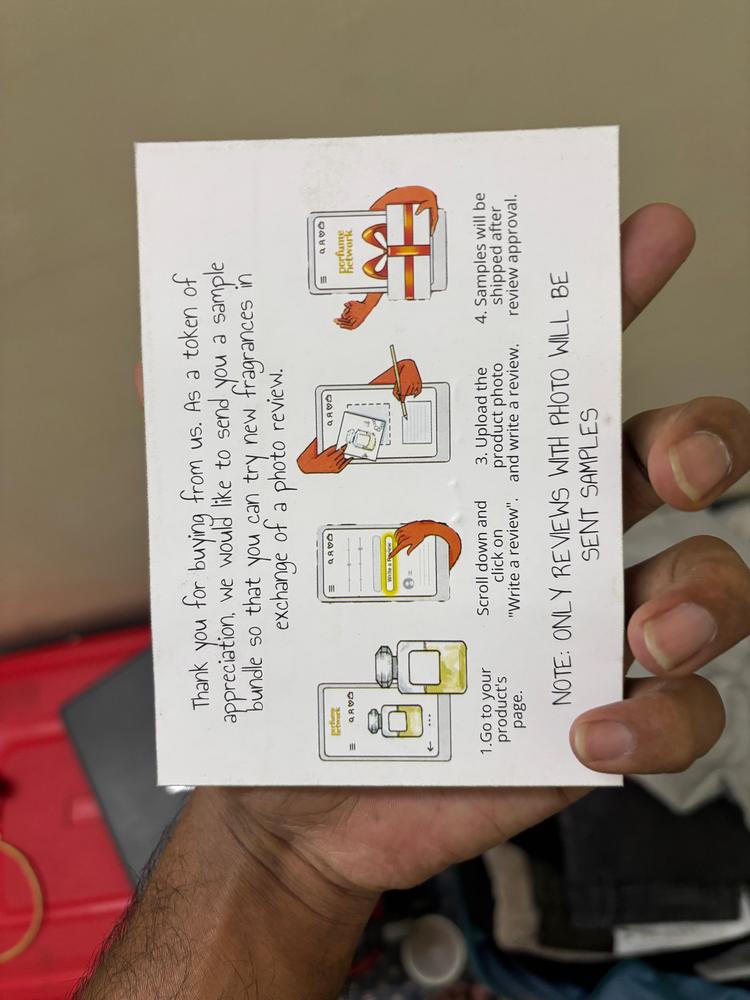 Thank you for buying from us. As a token of
appreciation, we would like to send you a sample
bundle so that you can try new fragrances in
exchange of a photo review.
perfume
network
Write a Review
perfume
network
1.Go to your
product's
page.
Scroll down and
click on
"Write a review".
3. Upload the
product photo
and write a review.
4. Samples will be
shipped after
review approval.
NOTE: ONLY REVIEWS WITH PHOTO WILL BE
SENT SAMPLES